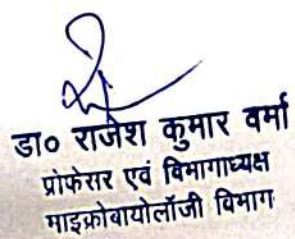 डा० राजेश कुमार वर्मा
प्रोफेसर एवं विभागाध्यक्ष
माइक्रोबायोलॉजी विभाग